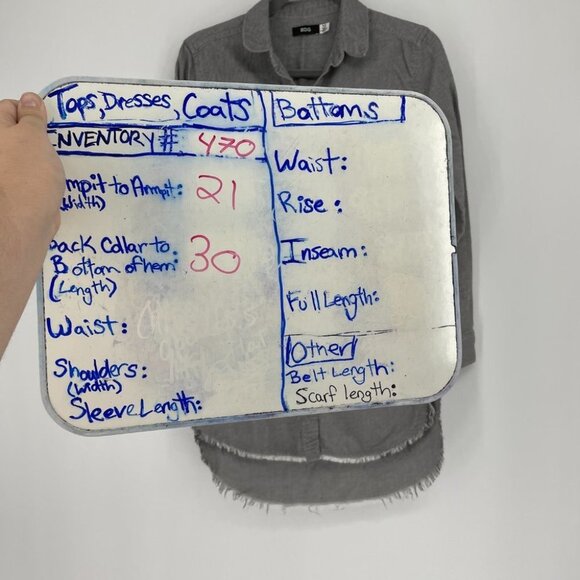 BDG
Tops, Dresses, Coats
INVENTORY #: 470
mpit to Armpit: 21
(Width)
Back Collar to
Bottom of hem: 30
(Length)
Waist:
Shoulders:
(Width)
Sleeve Length:
Bottoms
Waist:
Rise:
Inseam:
Full Length:
Other
Belt Length:
Scarf length: